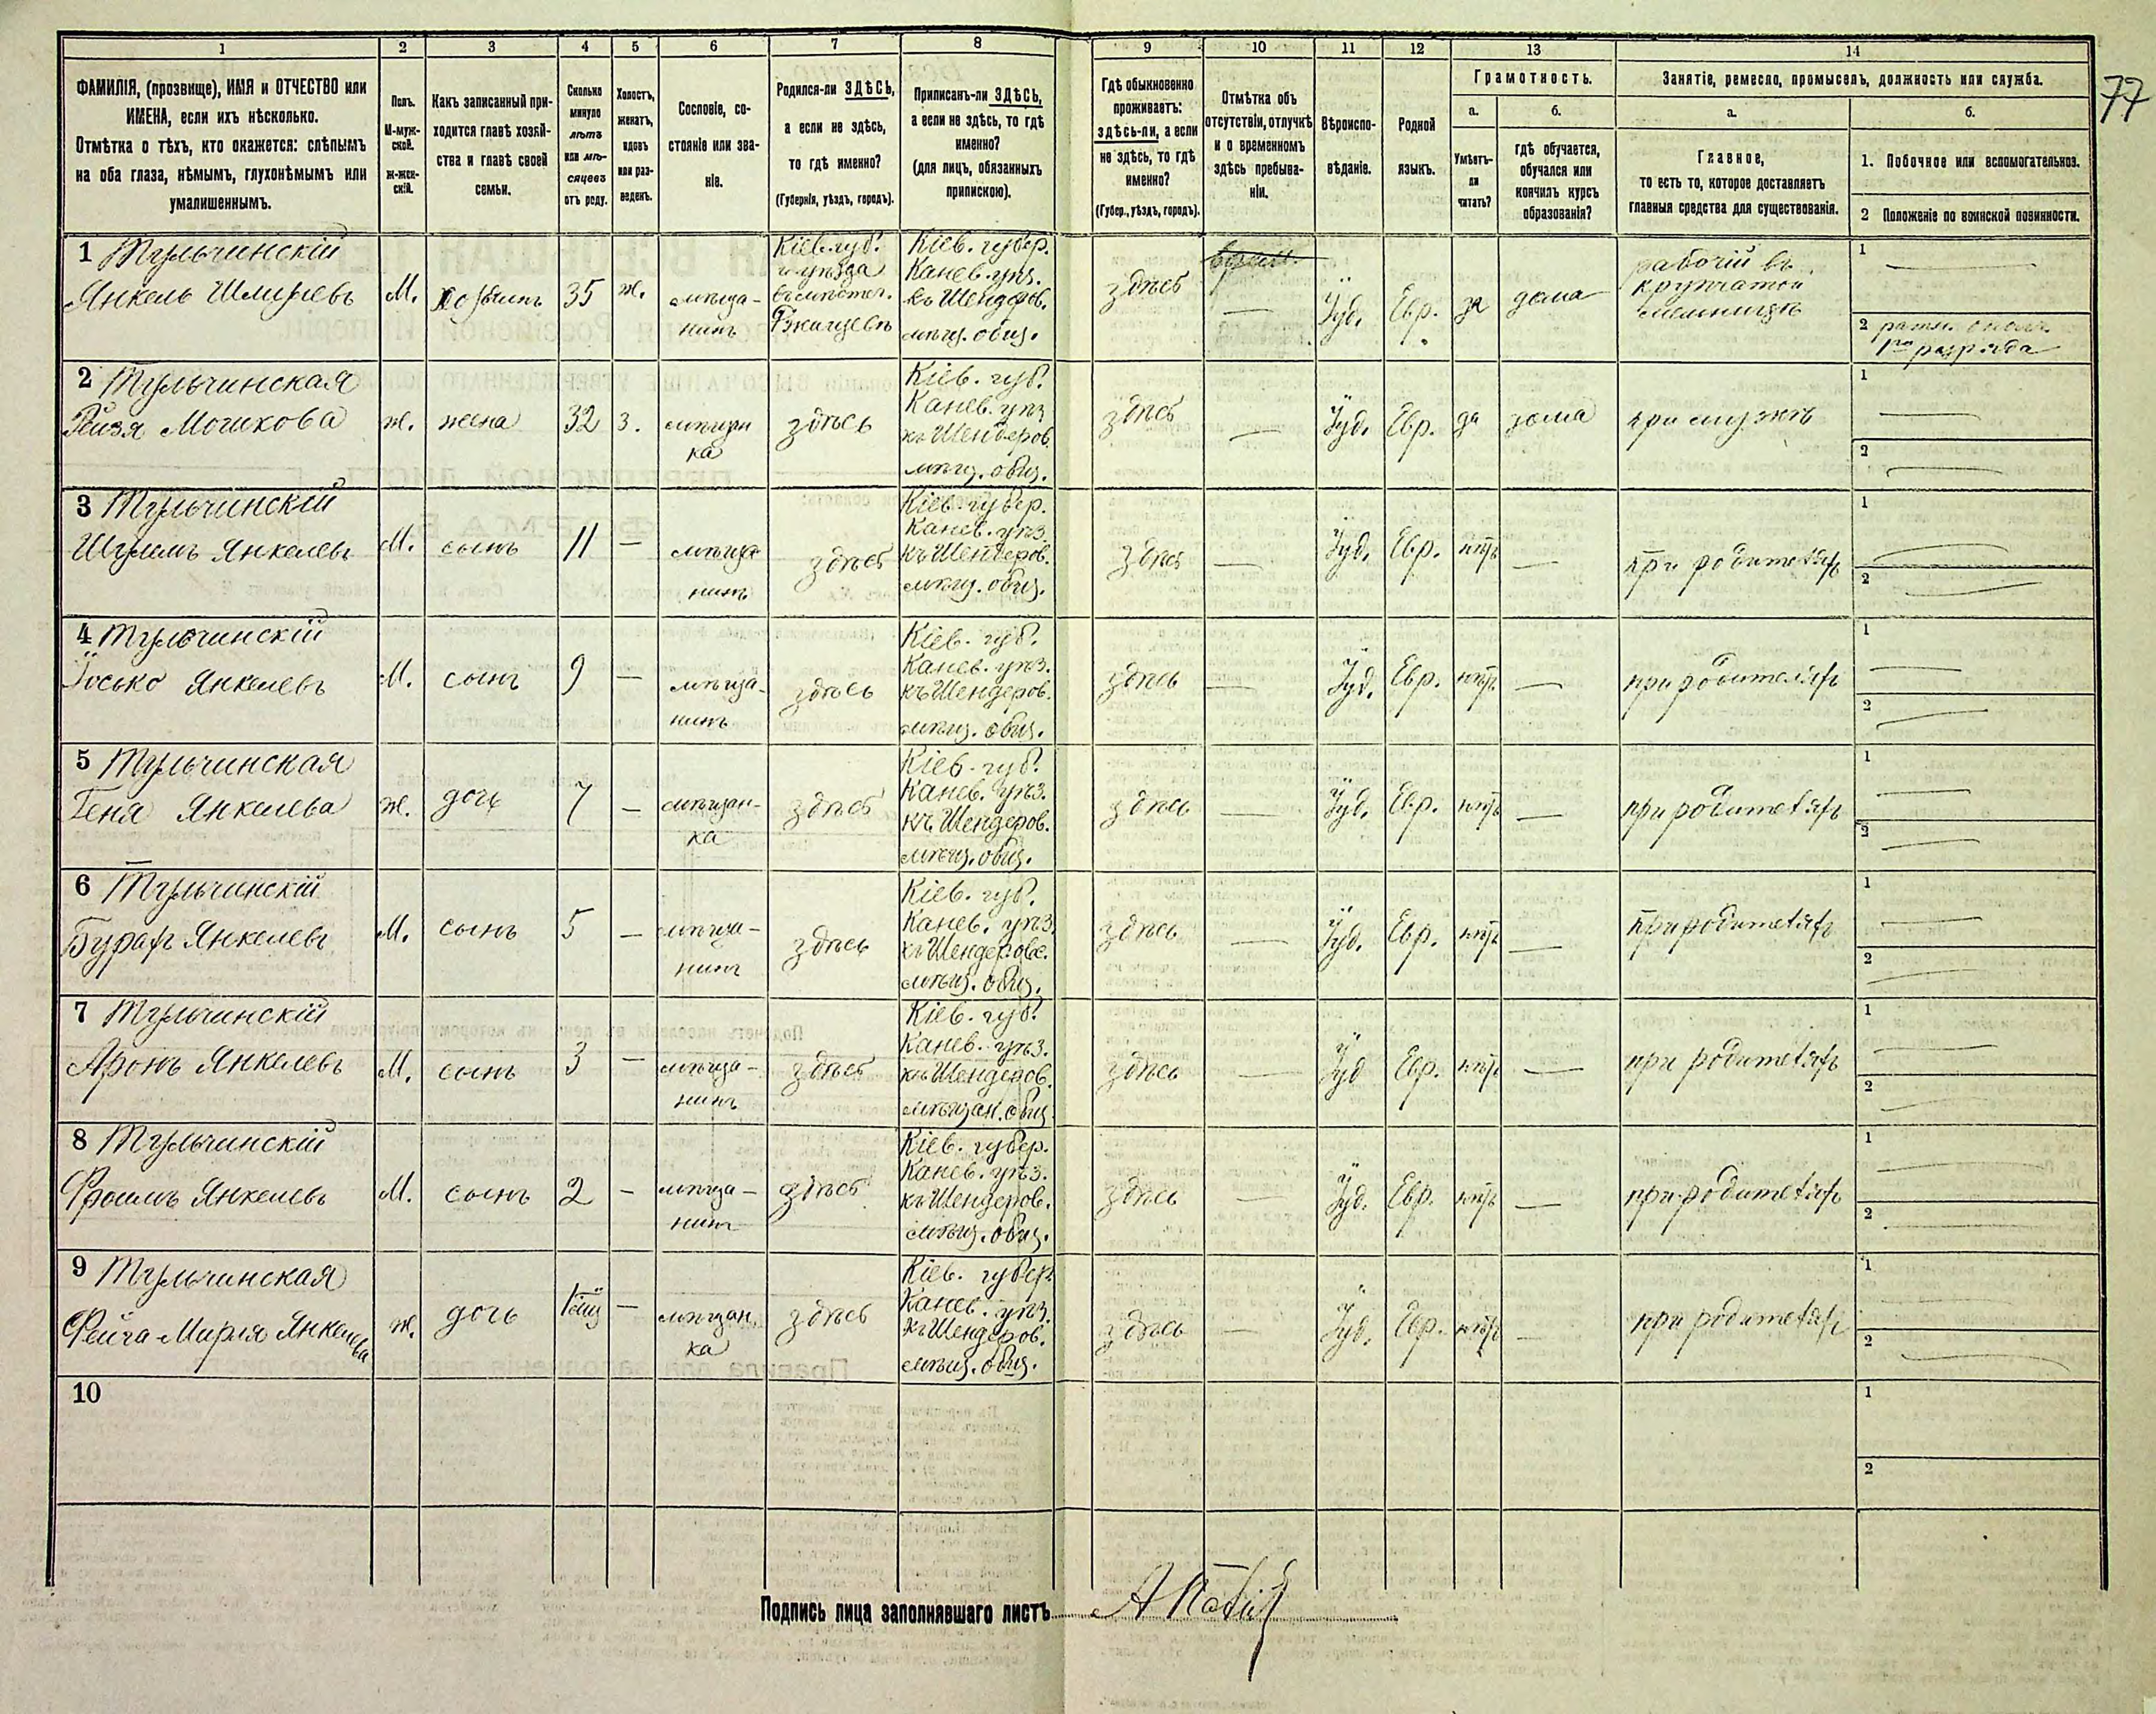 77
1 2 3 4 5 6 7 8 9 10 11 12 13 14
ФАМИЛІЯ, (прозвище), ИМЯ и ОТЧЕСТВО или
ИМЕНА, если ихъ нѣсколько.
Отмѣтка о тѣхъ, кто окажется: слѣпымъ
на оба глаза, нѣмымъ, глухонѣмымъ или
умалишеннымъ.
Полъ.
М-муж-
ской.
Ж-жен-
скій.
Какъ записанный при-
ходится главѣ хозяй-
ства и главѣ своей
семьи.
Сколько
минуло
лѣтъ
или мѣ-
сяцевъ
отъ роду.
Холостъ,
женатъ,
вдовъ
или раз-
веденъ.
Сословіе, со-
стояніе или зва-
ніе.
Родился-ли ЗДѢСЬ,
а если не здѣсь,
то гдѣ именно?
(Губернія, уѣздъ, городъ).
Приписанъ-ли ЗДѢСЬ,
а если не здѣсь, то гдѣ
именно?
(для лицъ, обязанныхъ
припискою).
Гдѣ обыкновенно
проживаетъ:
здѣсь-ли, а если
не здѣсь, то гдѣ
именно?
(Губер., уѣздъ, городъ).
Отмѣтка объ
отсутствіи, отлучкѣ
и о временномъ
здѣсь пребыва-
ніи.
Вѣроиспо-
вѣданіе.
Родной
языкъ.
Грамотность.
а.
Умѣетъ-
ли
читать?
б.
гдѣ обучается,
обучался или
кончилъ курсъ
образованія?
Занятіе, ремесло, промыселъ, должность или служба.
а.
Главное,
то есть то, которое доставляетъ
главныя средства для существованія.
б.
1. Побочное или вспомогательное.
2 Положеніе по воинской повинности.
1 Тульчинскій
Янкель
М.
хозяинъ
35
ж.
мѣща-
нинъ
Кіев. губ.
Кіев. губер.
Канев. уѣз.
къ Шендеров.
мѣщ. общ.
здѣсь
Іуд.
Евр.
да
дома
рабочій въ
крупчатой
мельницѣ
1
2 ратн. ополч.
1го разряда
2 Тульчинская
Рейзя Мошкова
ж.
жена
32
з.
мѣщан
ка
здѣсь
Кіев. губ.
Канев. уѣз
къ Шендеров.
мѣщ. общ.
здѣсь
Іуд.
Евр.
да
дома
при мужѣ
1
2
3 Тульчинскій
Шулимъ Янкелевъ
М.
сынъ
11
мѣща
нинъ
здѣсь
Кіев. губер.
Канев. уѣз.
къ Шендеров.
мѣщ. общ.
здѣсь
Іуд.
Евр.
нѣтъ
при родителяхъ
1
2
4 Тульчинскій
Іосько Янкелевъ
М.
сынъ
9
мѣща-
нинъ
здѣсь
Кіев. губ.
Канев. уѣз.
къ Шендеров.
мѣщ. общ.
здѣсь
Іуд.
Евр.
нѣтъ
при родителяхъ
1
2
5 Тульчинская
Геня Янкелева
ж.
дочь
7
мѣщан-
ка
здѣсь
Кіев. губ.
Канев. уѣз.
къ Шендеров.
мѣщ. общ.
здѣсь
Іуд.
Евр.
нѣтъ
при родителяхъ
1
2
6 Тульчинскій
Бурахъ Янкелевъ
М.
сынъ
5
мѣща-
нинъ
здѣсь
Кіев. губ.
Канев. уѣз.
къ Шендеровс.
мѣщ. общ.
здѣсь
Іуд.
Евр.
нѣтъ
при родителяхъ
1
2
7 Тульчинскій
Аронъ Янкелевъ
М.
сынъ
3
мѣща-
нинъ
здѣсь
Кіев. губ.
Канев. уѣз.
къ Шендеров.
мѣщан. общ.
здѣсь
Іуд
Евр.
нѣтъ
при родителяхъ
1
2
8 Тульчинскій
Фроимъ Янкелевъ
М.
сынъ
2
мѣща-
нинъ
здѣсь
Кіев. губер.
Канев. уѣз.
къ Шендеров.
мѣщ. общ.
здѣсь
Іуд.
Евр.
нѣтъ
при родителяхъ
1
2
9 Тульчинская
Фейга-Мирля Янкелева
ж.
дочь
мѣщан.
ка
здѣсь
Кіев. губер.
Канев. уѣз.
къ Шендеров.
мѣщ. общ.
здѣсь
Іуд.
Евр.
нѣтъ
при родителяхъ
1
2
10
1
2
Подпись лица заполнявшаго листъ